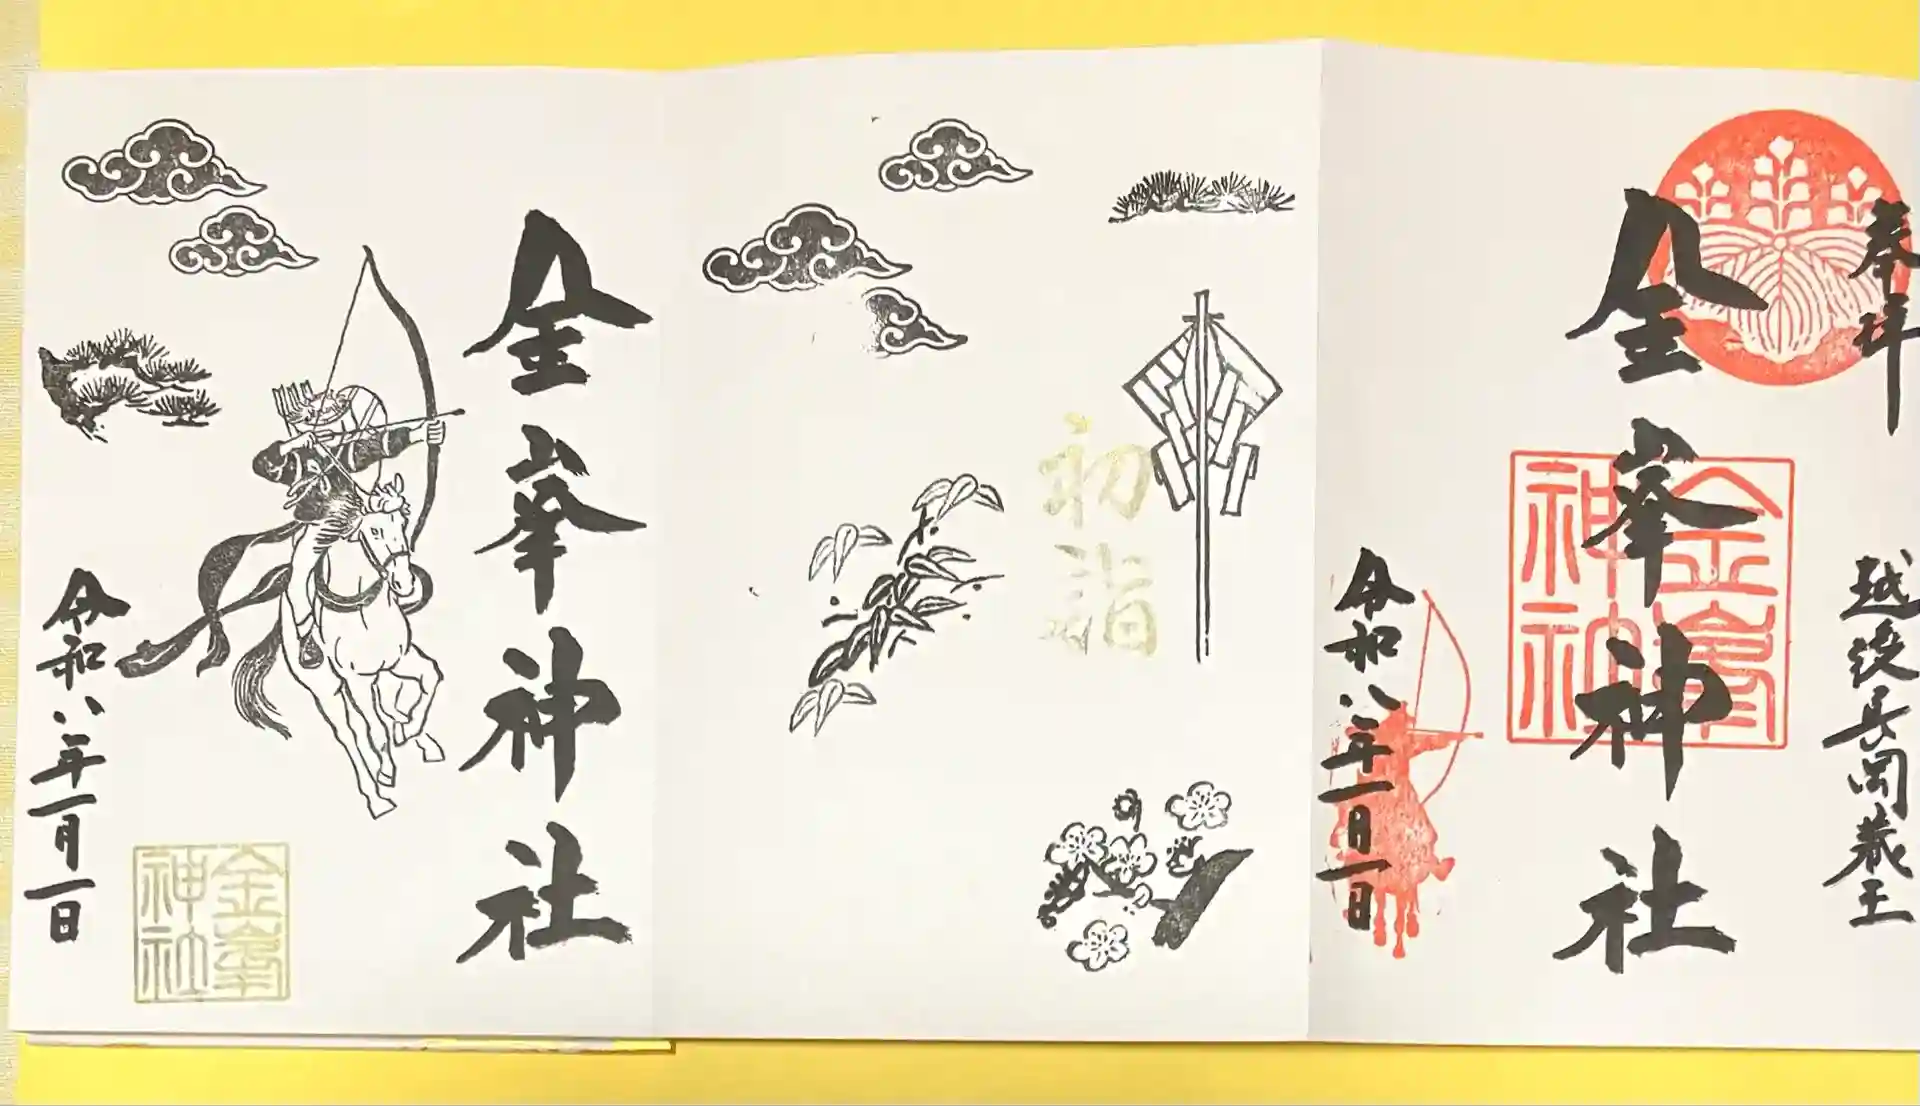 奉拝
越後長岡蔵王
金峯神社
金峯神社
令和八年一月一日
初詣
金峯神社
令和八年一月一日
金峯神社